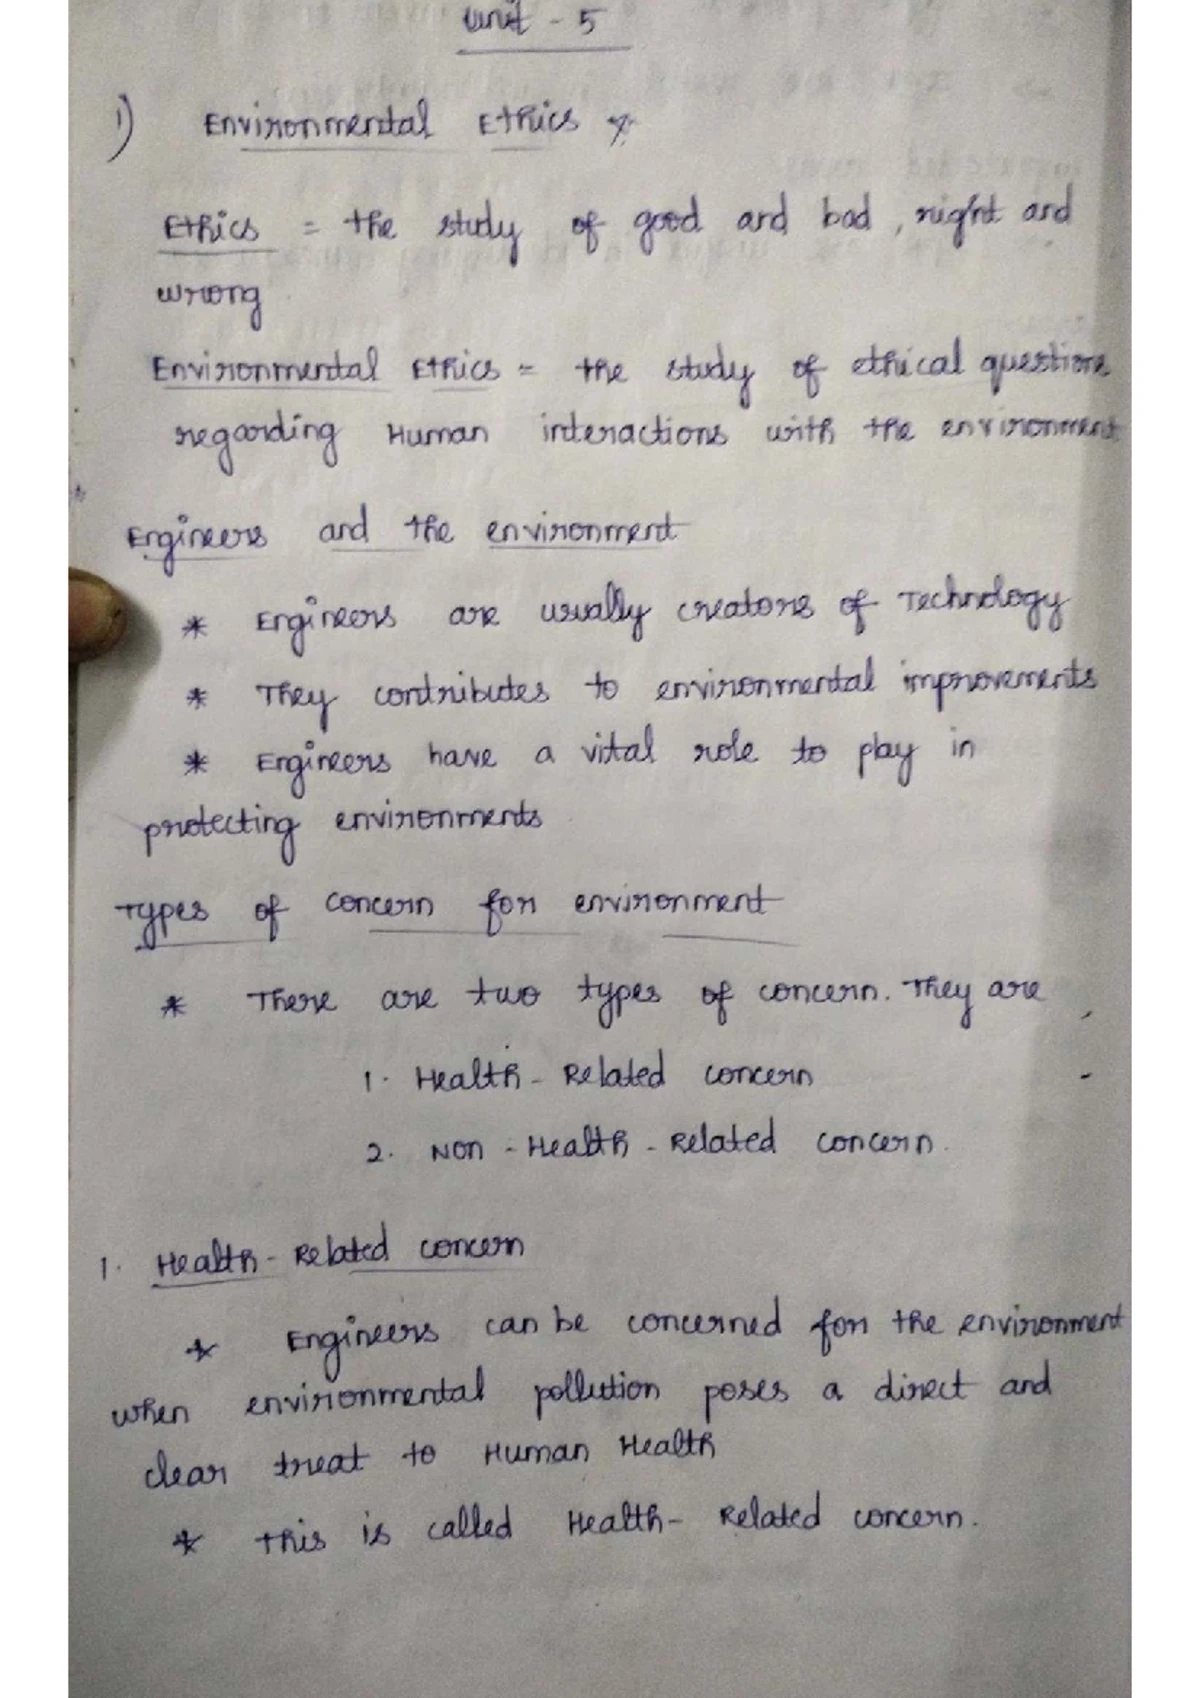 Unit - 5
1) Environmental Ethics
Ethics = the study of good and bad, right and
wrong
Environmental Ethics = the study of ethical questions
regarding Human interactions with the environment
Engineers and the environment
* Engineers are usually creators of Technology
* They contributes to environmental improvements
* Engineers have a vital role to play in
protecting environments
Types of concern for environment
* There are two types of concern. They are
1. Health - Related concern
2. Non - Health - Related concern.
1. Health - Related concern
* Engineers can be concerned for the environment
when environmental pollution poses a direct and
clear treat to Human Health
* This is called Health - Related concern.